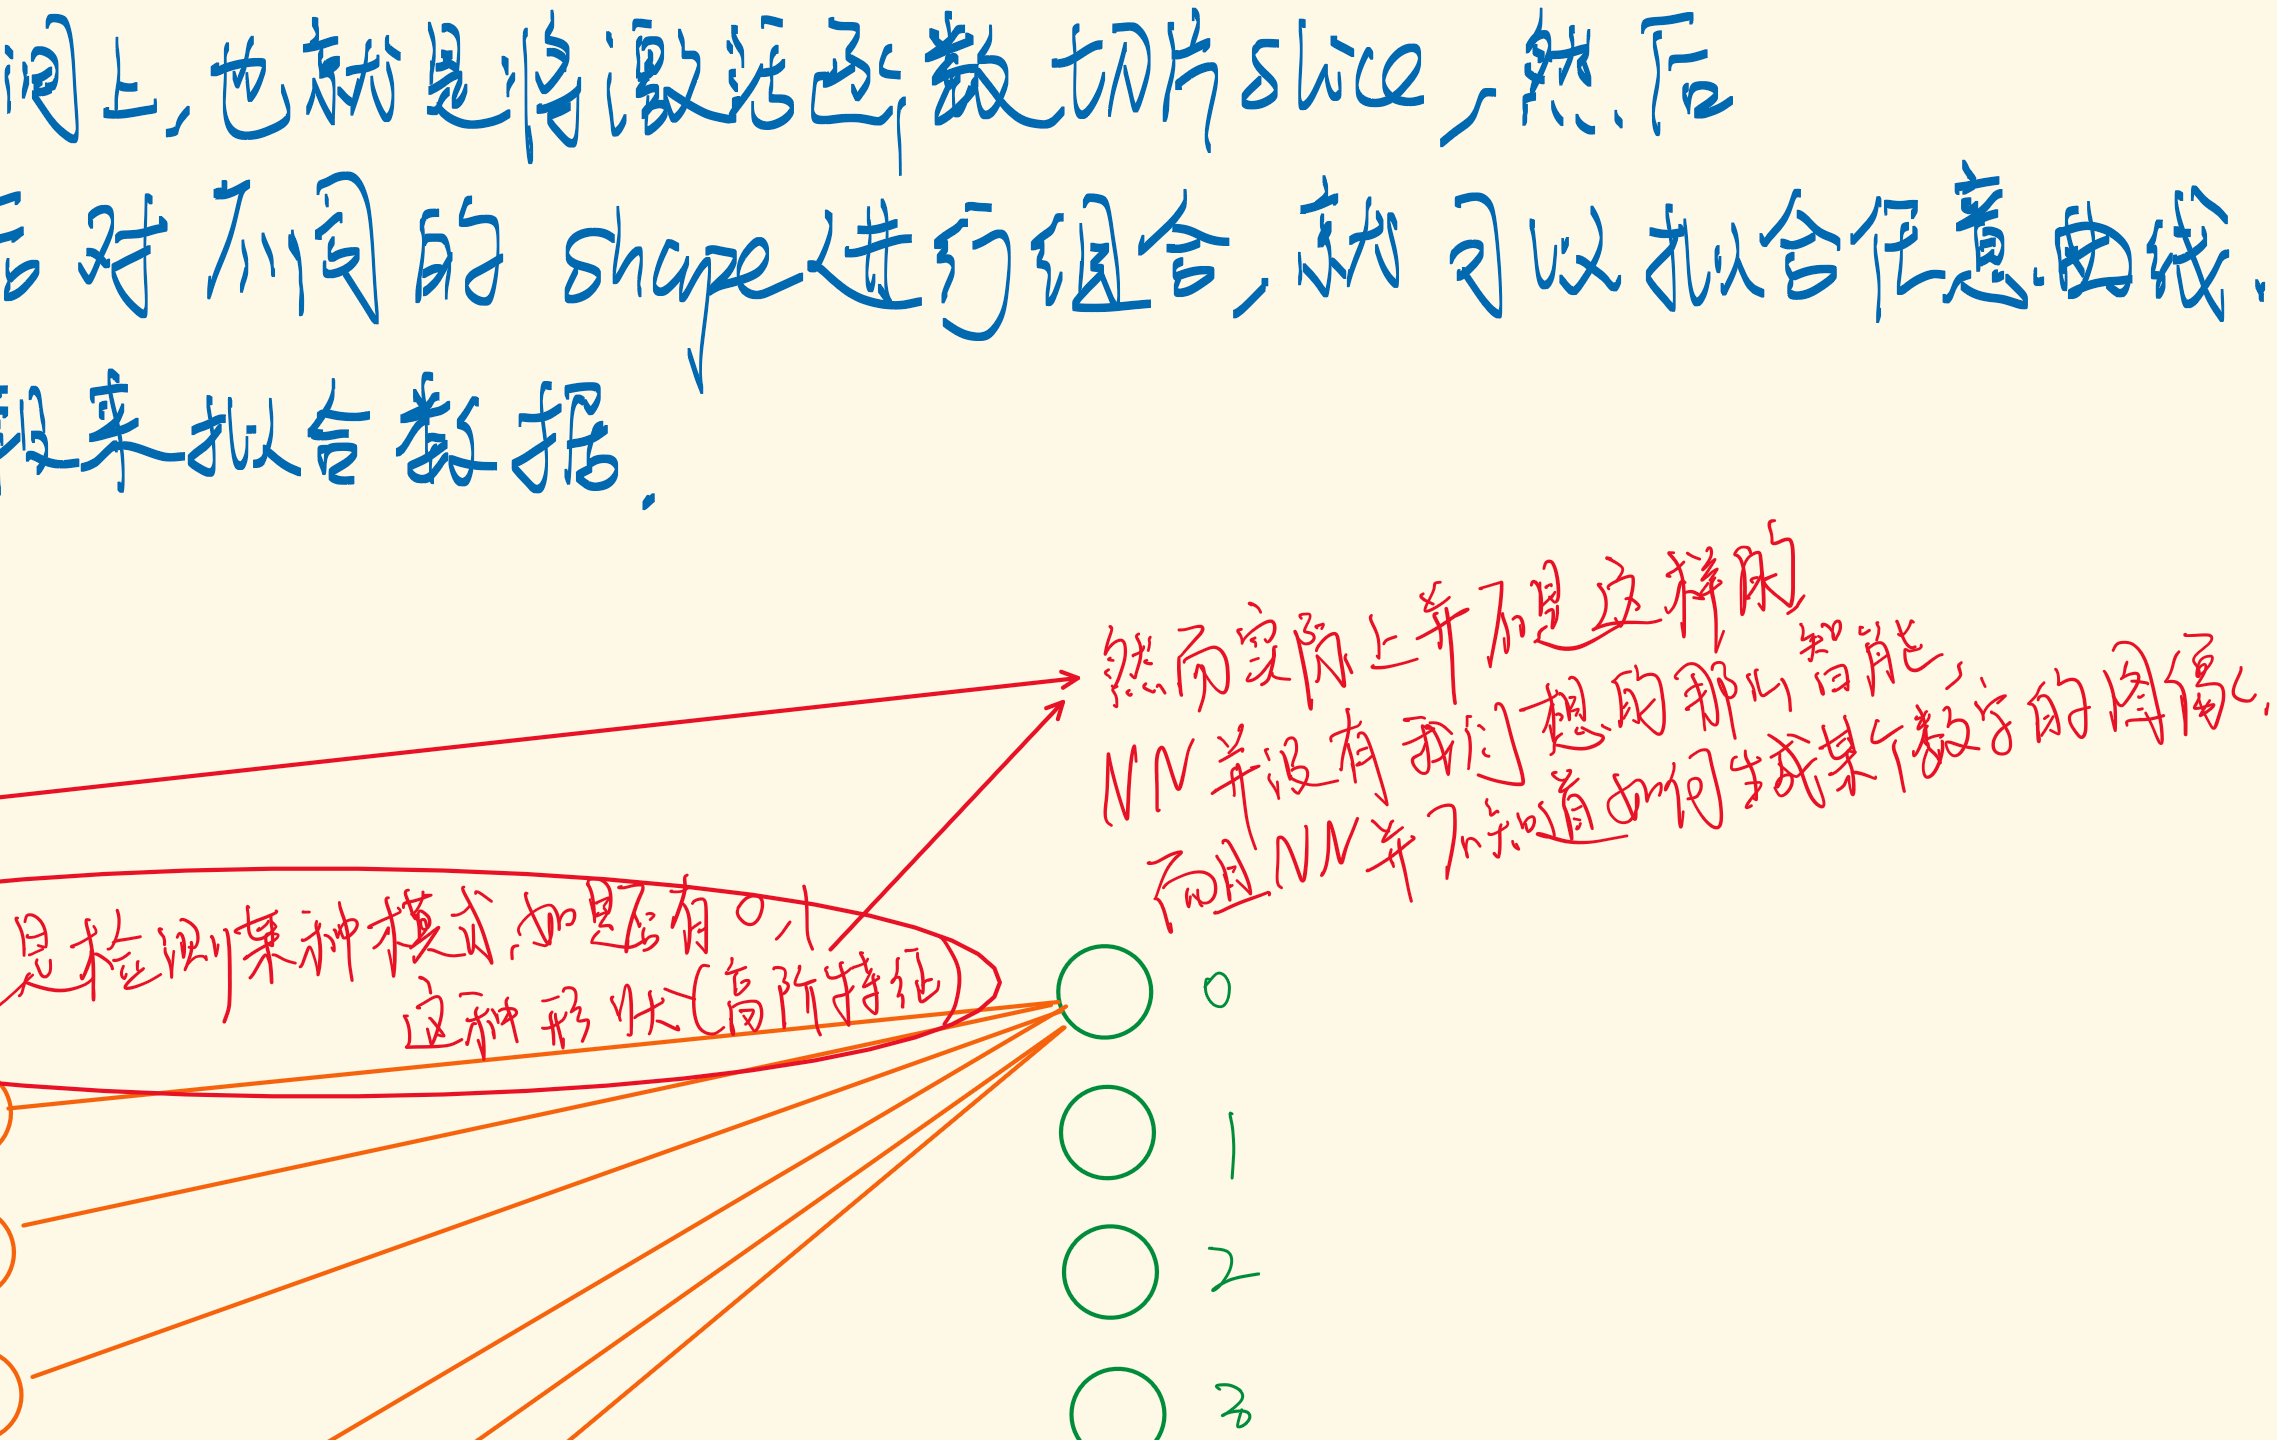 间上,也就是将激活函数切片slice,然后
后对不同的shape进行组合,就可以拟合任意曲线.
段来拟合数据.
然而实际上并不是这样的
NN并没有我们想的那么智能,
而且NN并不知道如何生成某个数字的图像,
是检测某种模式,如是否有0,1
这种形状(高阶特征)
0
1
2
3